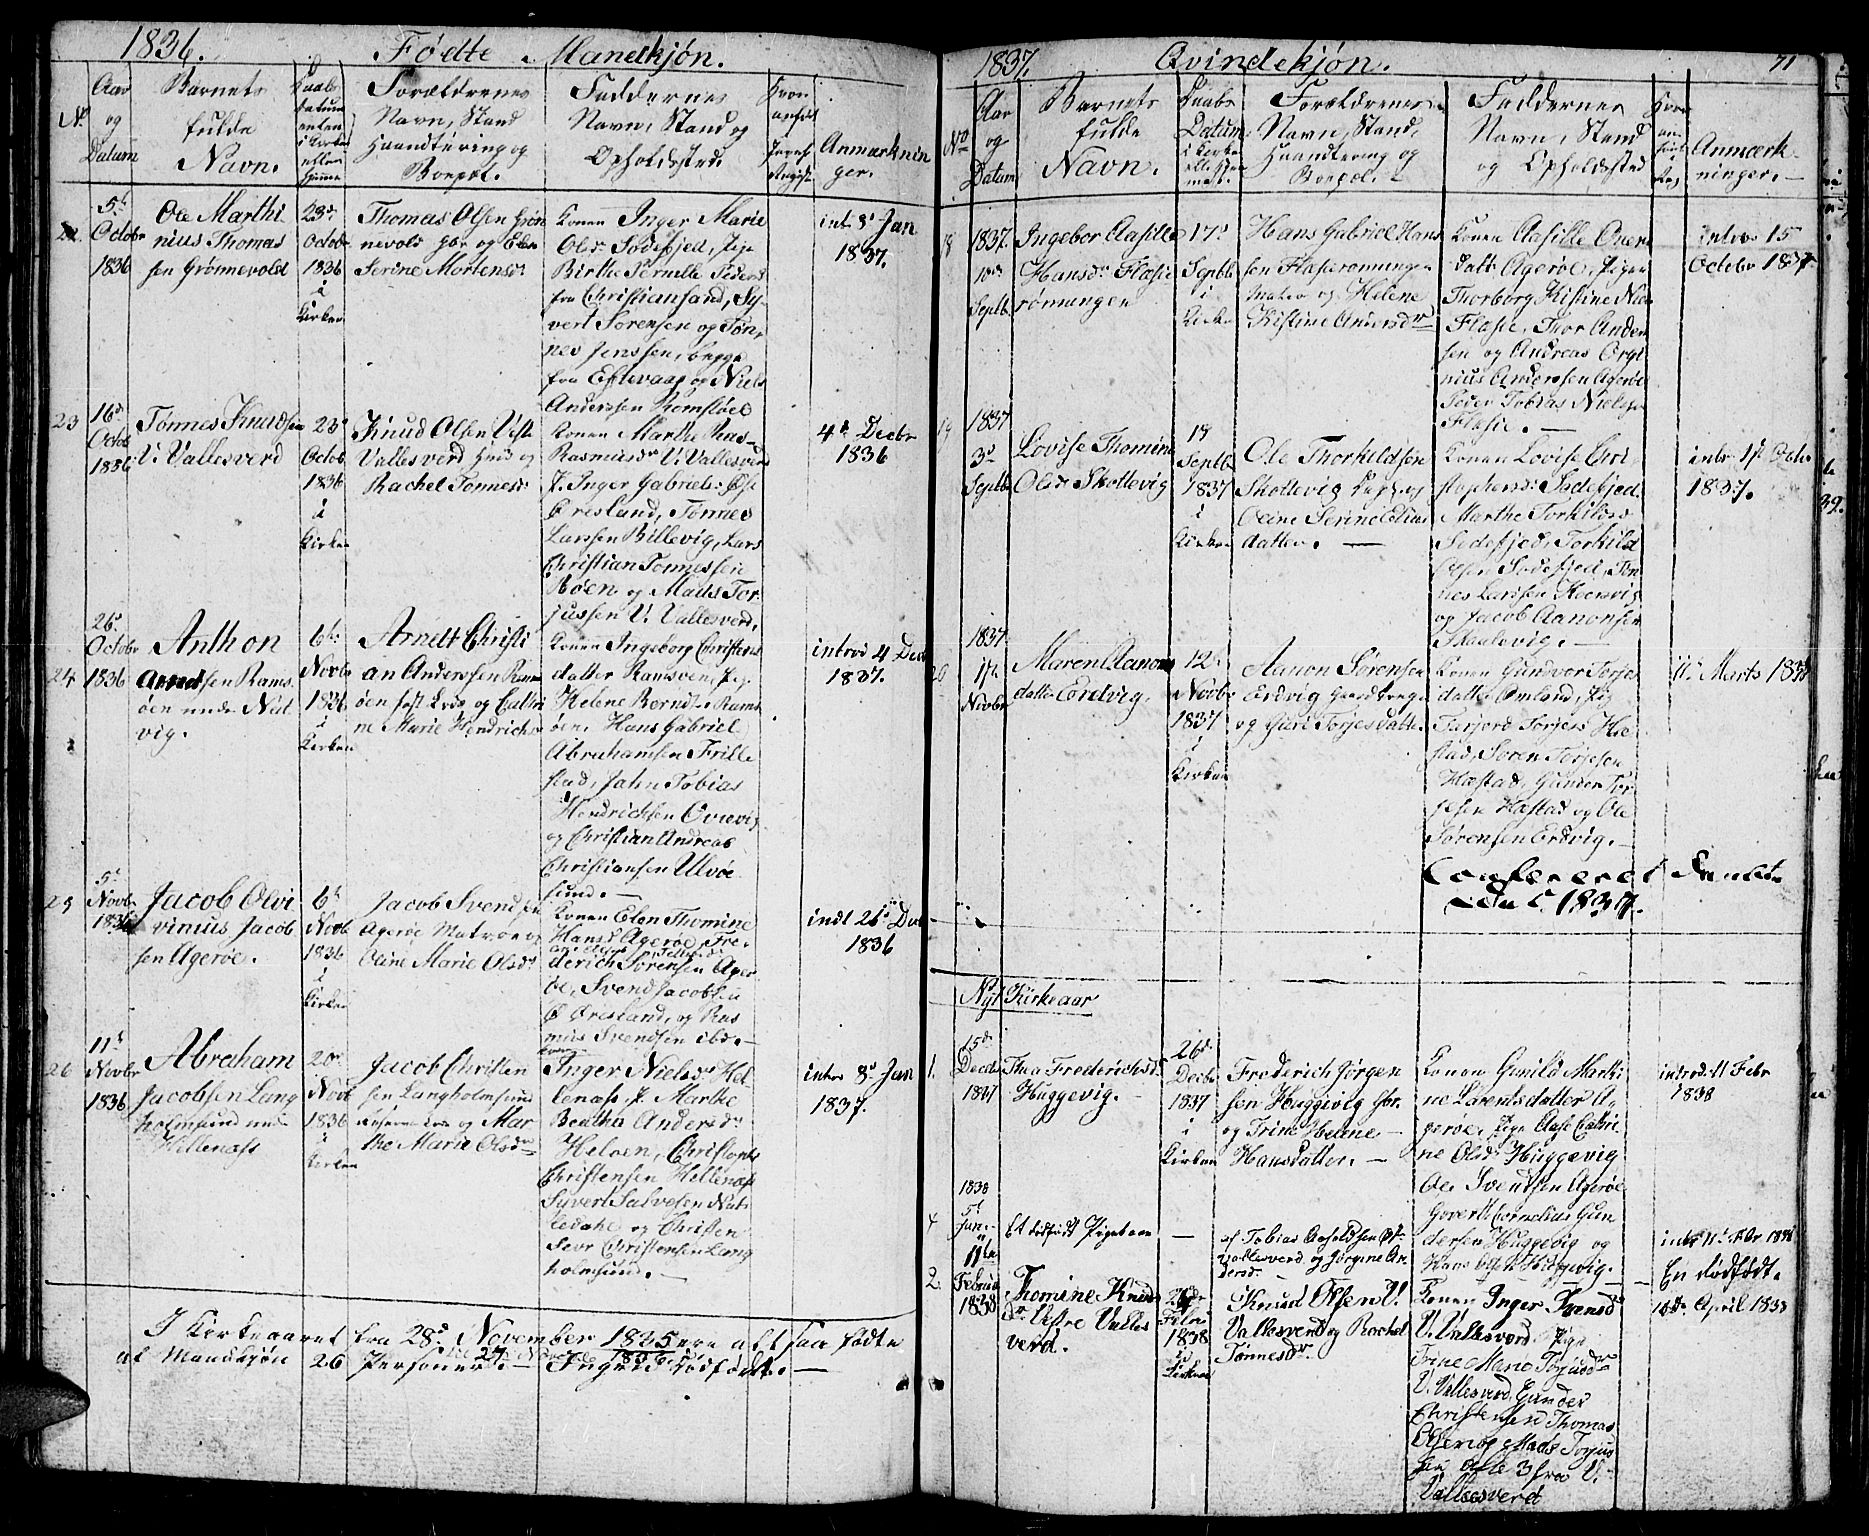 1836. Fødte Mandkjøn.
No
Aar
og
Datum
Barnets
fulde
Navn.
Daabs
Datum
enten
i Kirken
eller
hjemme
Forældrenes
Navn, Stand
Haandtering og
Boepæl.
Faddernes
Navn, Stand og
Opholdsted.
Anmærknin
ger.
22.
5t
Octobr
1836
Ole Marthi
nius Thomas
sen Grønnevold
23d
Octobr
1836
i
Kirken
Thomas Olsen Grøn
nevold
Serine Mortensdr
Konen Inger Marie
Olsdr Sodefjed, Pige
Birthe Pernille Peders
fra Christiansand, Sy
vert Sørensen og Tøn
nes Jenssen, begge
fra Eftevaag og Niels
Anderssen Romstøel
intr 8d Jan
1837.
23
16d
Octob
1836
Tønnes Knudsen
V. Vallesverd
23d
Octob
1836
i
Kirken
Knud Olsen Vestr
Vallesverd
Rachel Tønnesdr
Konen Marthe Ras
Rasmusdr V. Vallesverd
P. Inger Gabrielsdr
Øresland, Tønnes
Larssen Billevig, Lars
Christian Tønnessen
Røen og Mads Tor
jussen V. Vallesverd.
4d Decbr
1836
24
26d
Octobr
1836
Anthon
Arndtsen Rams
øen
vig.
6te
Novbr
1836
i
Kirken
Arndt Christi
an Anderssen Ram
øen og Cathri
ne Marie Hendrichsdr
Konen Ingeborg Christens
datter Ramsøen, Pig
Helene Berndtdr Rams
øen, Hans Gabriel
Abrahamsen Trille
stad, John Tobias
Hendrichsen Qvievig
og Christian Andreas
Christiansen Ulvøe
sund.
introd 4 Dec
1837.
25
5t
Novbr
1836
Jacob Olvi
vinius Jacob
sen Agerøe.
6t
Novb
1836
i
Kirken
Jacob Svendsen
Agerøe Matros og
Oline Marie Olsdr
Konen Elen Thomine
Hansdr Agerøe, Fre
derich Sørensen Ager
øe, Svend Jacobsen
Øresland, og Ras
mus Svendsen ibd.
indt 26d Dec
1836
26
11t
Novbr
1836
Abraham
Jacobsen Lang
holmsund
Hellenæss
20de
Nov
1836
i
Kirken
Jacob Christen
sen Langholmsund
og Mar
the Marie Olsdr
Inger Nielsdr Hel
lenæss, P. Marthe
Beathe Andersdr
Heløen, Christoph
Christensen Hellenæss
Syvert Salvesen Nuts
ledahl og Christen
Sevr Christensen Lang
holmsund.
intro 8d Jan
1837.
I Kirkeaaret fra 28d November 1835
til 27 Novbr 1836 ere altsaa fødte
af Mandkjøn 26 Personer. Ingen dødfødt.
1837. Qvindekjøn. 71
No
Aar
og
Datum
Barnets
fulde
Navn.
Daabs
Datum
i Kirken
Forældrenes
Navn, Stand,
Haandtering og
Boepæl.
Faddernes
Navn, Stand
og Opholdsted
Anmærk
ninger.
18
1837
10d
Septb
Ingebor Aasille
Hansdr Flasie
rømungen
17d
Septb
i
Kirken
Hans Gabriel Hans
sen Flasierømungen
Matro og Helene
Kistine Andersdr
Konen Aasille Over
datr Agerøe, Piger
Thorborg Kistine Niels
Flasie, Thor Ander
sen og Andreas Orgi
nius Anderssen Agerøe
Peder Tobias Nielsen
Flasie.
introd 15
Octobr 1837
19
1837
3d
Septb
Lovise Thomine
Olsdr Skottevig
18
Septb
1837
i
Kirken
Ole Thorkildsen
Skottevig
Oline Serine
datter.
Konen Lovise Chri
stophersdr Sodefjed.
Marthe Torkildsdr
Sodefjed, Torkild
Olsen Sodefjed, Tøn
nes Larssen
og Jacob Aanonsen
Skaalevig.
intr 1st Octbr
1837.
20
1837
1st
Novbr
Maren Aanons
datter Erdvig,
12
Novbr
1837
i
Kirken
Aanon Sørensen
Erdvig
og Guri Torjesdatter
Konen Gundvor Torjes
datter Omland, Pig
Tarjerd Torjesdr Hæ
stad, Søren Torjesen
Hæstad, Gunder Tor
jesen Hæstad og Ole
Sørensen Erdvig.
11te Marts 1838
Confereret
1837.
Nyt Kirkeaar
1.
15d
Decbr
1837
Thea Frederichsdr
Huggevig.
26d
Decbr
1837
i
Kirken
Frederich Jørgen
sen Huggevig
og Trine Helene
Hansdatter.
Konen Gunild Marthi
ne Larentsdatter A
gerøe, Pige Aase Cathri
ne Olsdr Huggevig
Ole Svendsen Agerøe
Govert Cornelius Gun
dersen Huggevig og
Hans Olsen Huggevig.
introd. 11 Febr
1838
1838
5t
Jan
Et dødfødt Pigebarn
af Tobias
Vallesverd og Jørgine An
dersdr
intr 11 Febr 1838
En dødfødt.
2.
11te
Februar
1838
Thomine Knuds
dr Vestre Valles
verd.
Febr
1838
i
Kirken
Knud Olsen V.
Vallesverd og Rachel
Tønnesdr.
Konen Inger Svendsdr
V. Vallesverd, Pige
Trine Marie Torjusdr
V. Vallesverd, Gunder
Christensen Thomas
Olsen og Mads Torjus
sen alle 3 fra V.
Vallesverd
April 1838